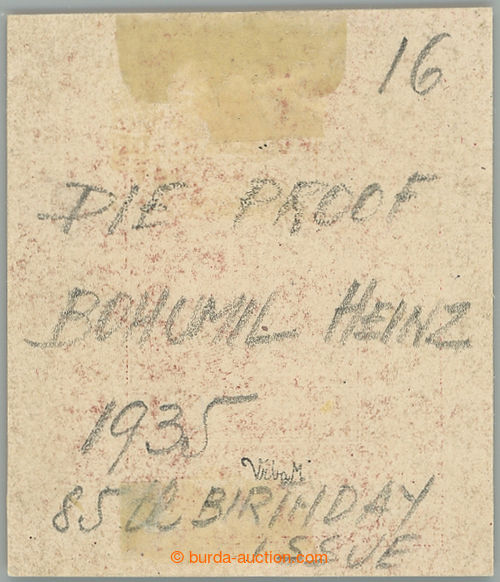 16
DIE PROOF
BOHUMIL HEINZ
1935
Vrba M.
85th BIRTHDAY
ISSUE
© burda-auction.com